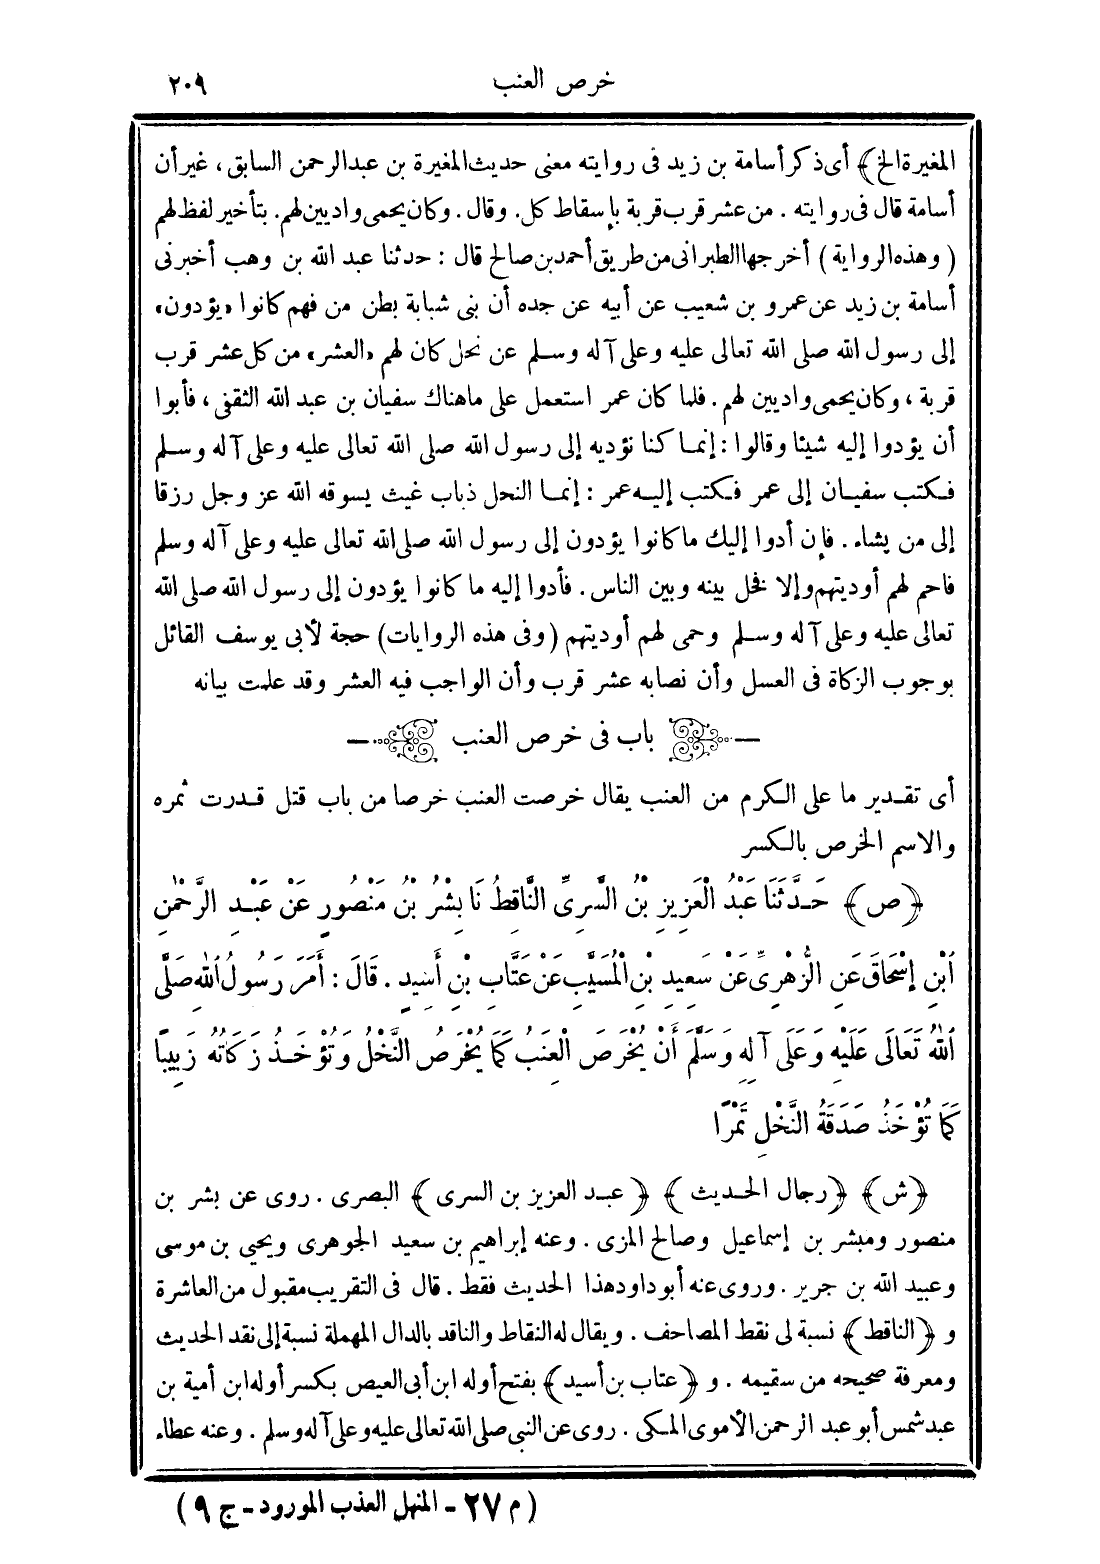 خرص العنب ٢٠٩
المغيرة الخ﴾ أى ذكر أسامة بن زيد فى روايته معنى حديث المغيرة بن عبد الرحمن السابق ، غير أن
أسامة قال فى روايته . من عشر قرب قربة بإسقاط كل. وقال . وكان يحمى واديين لهم. بتأخير لفظ لهم
( وهذه الرواية ) أخرجها الطبرانى من طريق أحمد بن صالح قال : حدثنا عبد الله بن وهب أخبرنى
أسامة بن زيد عن عمرو بن شعيب عن أبيه عن جده أن بنى شبابة بطن من فهم كانوا «يؤدون»
إلى رسول الله صلى الله تعالى عليه وعلى آله وسلم عن نحل كان لهم «العشر» من كل عشر قرب
قربة ، وكان يحمى واديين لهم . فلما كان عمر استعمل على ماهناك سفيان بن عبد الله الثقفى ، فأبوا
أن يؤدوا إليه شيئا وقالوا : إنما كنا نؤديه إلى رسول الله صلى الله تعالى عليه وعلى آله وسلم
فكتب سفيان إلى عمر فكتب إليه عمر : إنما النحل ذباب غيث يسوقه الله عز وجل رزقا
إلى من يشاء . فإن أدوا إليك ما كانوا يؤدون إلى رسول الله صلى الله تعالى عليه وعلى آله وسلم
فاحم لهم أوديتهم وإلا فخل بينه وبين الناس . فأدوا إليه ما كانوا يؤدون إلى رسول الله صلى الله
تعالى عليه وعلى آله وسلم وحمى لهم أوديتهم (وفى هذه الروايات) حجة لأبى يوسف القائل
بوجوب الزكاة فى العسل وأن نصابه عشر قرب وأن الواجب فيه العشر وقد علمت بيانه
— باب فى خرص العنب —
أى تقدير ما على الكرم من العنب يقال خرصت العنب خرصا من باب قتل قدرت ثمره
والاسم الخرص بالكسر
﴿ص﴾ حَدَّثَنَا عَبْدُ الْعَزِيزِ بْنُ السَّرِىِّ النَّاقِطُ نَا بِشْرُ بْنُ مَنْصُورٍ عَنْ عَبْدِ الرَّحْمٰنِ
ابْنِ إِسْحَاقَ عَنِ الزُّهْرِىِّ عَنْ سَعِيدِ بْنِ الْمُسَيَّبِ عَنْ عَتَّابِ بْنِ أَسِيدٍ . قَالَ : أَمَرَ رَسُولُ اللهِ صَلَّى
اللهُ تَعَالَى عَلَيْهِ وَعَلَى آلِهِ وَسَلَّمَ أَنْ يُخْرَصَ الْعِنَبُ كَمَا يُخْرَصُ النَّخْلُ وَتُؤْخَذُ زَكَاتُهُ زَبِيبًا
كَمَا تُؤْخَذُ صَدَقَةُ النَّخْلِ تَمْرًا
﴿ش﴾ ﴿رجال الحديث﴾ ﴿عبد العزيز بن السرى﴾ البصرى . روى عن بشر بن
منصور ومبشر بن إسماعيل وصالح المزى . وعنه إبراهيم بن سعيد الجوهرى ويحيى بن موسى
وعبيد الله بن جرير . وروى عنه أبو داود هذا الحديث فقط . قال فى التقريب مقبول من العاشرة
و ﴿الناقط﴾ نسبة لى نقط المصاحف . ويقال له النقاط والناقد بالدال المهملة نسبة إلى نقد الحديث
ومعرفة صحيحه من سقيمه . و ﴿عتاب بن أسيد﴾ بفتح أوله ابن أبى العيص بكسر أوله ابن أمية بن
عبد شمس أبو عبد الرحمن الأموى المكى . روى عن النبى صلى الله تعالى عليه وعلى آله وسلم . وعنه عطاء
(م ٢٧ - المنهل العذب المورود - ج ٩)